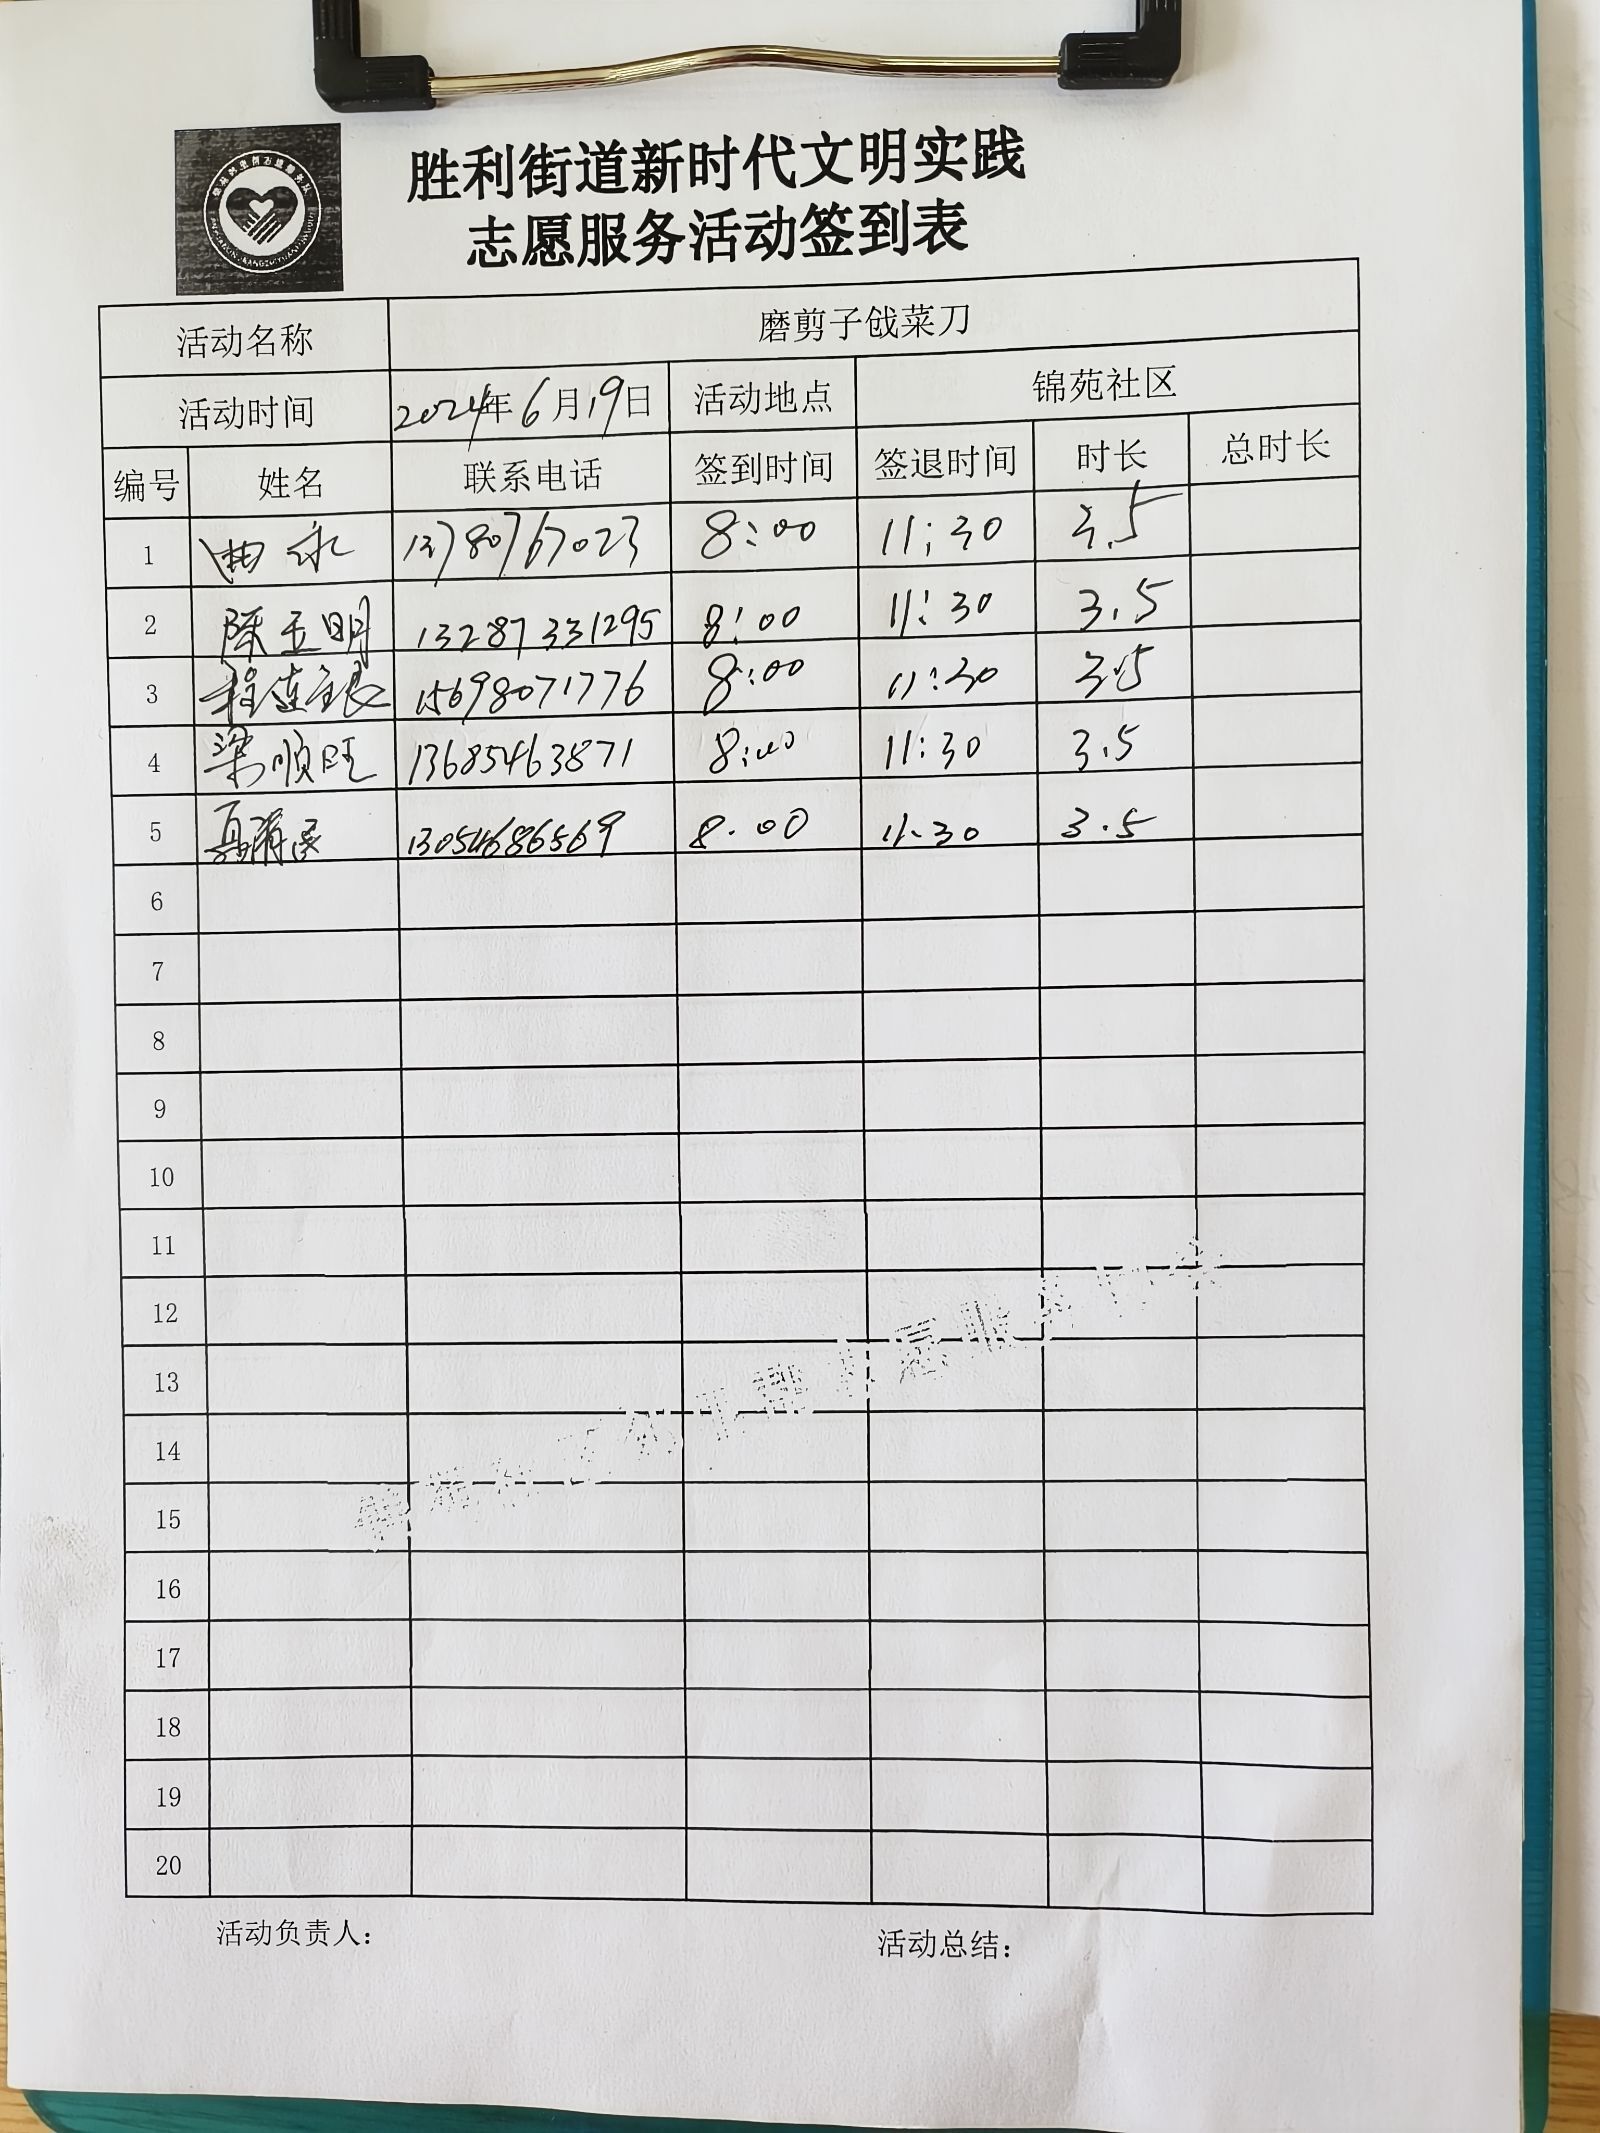 胜利街道新时代文明实践
志愿服务活动签到表
活动名称 磨剪子戗菜刀
活动时间 2024年6月19日 活动地点 锦苑社区
编号 姓名 联系电话 签到时间 签退时间 时长 总时长
1 曲永 13780767023 8:00 11:30 3.5
2 陈玉明 13287331295 8:00 11:30 3.5
3 程连银 15698071776 8:00 11:30 3.5
4 梁顺旺 13685463871 8:00 11:30 3.5
5 13054686569 8.00 11.30 3.5
6
7
8
9
10
11
12
13
14
15
16
17
18
19
20
活动负责人：
活动总结：